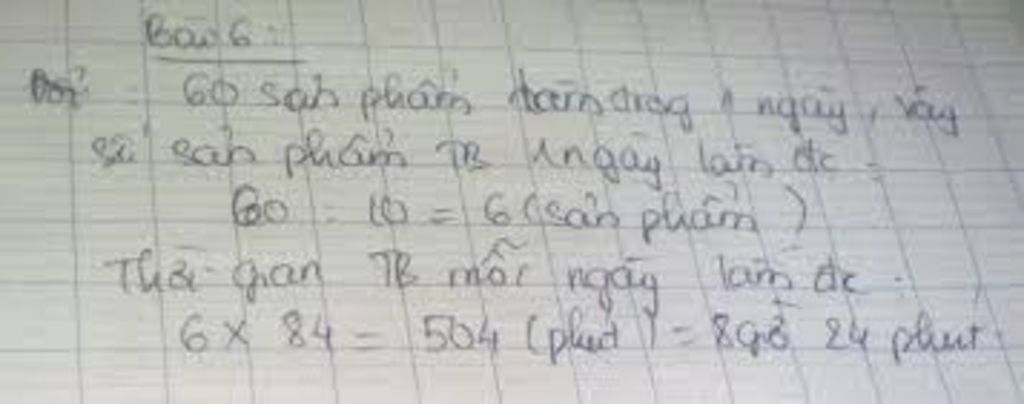 Bài 6:
60 sản phẩm làm trog 1 ngày, vậy
số sản phẩm TB 1 ngày làm đc:
60 : 10 = 6 (sản phẩm)
Thời gian TB mỗi ngày làm đc:
6 x 84 = 504 (phút) = 8 giờ 24 phút